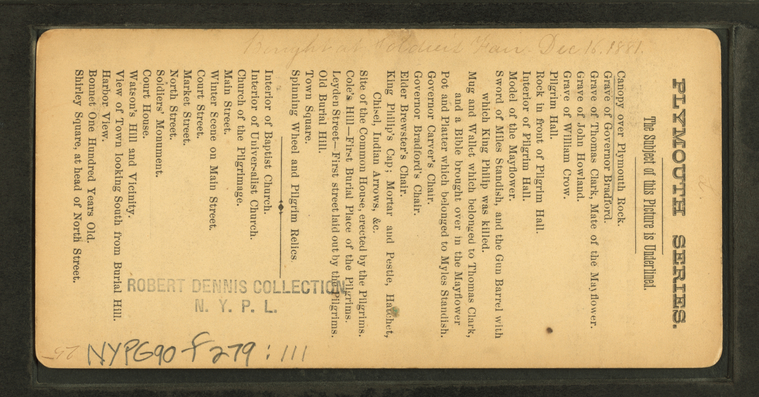 PLYMOUTH SERIES.
The Subject of this Picture is Underlined.
Canopy over Plymouth Rock.
Grave of Governor Bradford.
Grave of Thomas Clark, Mate of the Mayflower.
Grave of John Howland.
Grave of William Crow.
Pilgrim Hall.
Rock in front of Pilgrim Hall.
Interior of Pilgrim Hall.
Model of the Mayflower.
Sword of Miles Standish, and the Gun Barrel with
which King Philip was killed.
Mug and Wallet which belonged to Thomas Clark,
and a Bible brought over in the Mayflower
Pot and Platter which belonged to Myles Standish.
Governor Carver's Chair.
Governor Bradford's Chair.
Elder Brewster's Chair.
King Philip's Cap; Mortar and Pestle, Hatchet,
Chisel, Indian Arrows, &c.
Site of the Common House, erected by the Pilgrims.
Cole's Hill—First Burial Place of the Pilgrims.
Leyden Street—First street laid out by the Pilgrims.
Old Burial Hill.
Town Square.
Spinning Wheel and Pilgrim Relics
Interior of Baptist Church.
Interior of Universalist Church.
Church of the Pilgrimage.
Main Street.
Winter Scene on Main Street.
Court Street.
Market Street.
North Street.
Soldiers' Monument.
Court House.
Watson's Hill and Vicinity.
View of Town looking South from Burial Hill.
Harbor View.
Bonnet One Hundred Years Old.
Shirley Square, at head of North Street.
Bought at Soldiers Fair Dec 16. 1881.
ROBERT DENNIS COLLECTION
N. Y. P. L.
NYPG90-F279:111